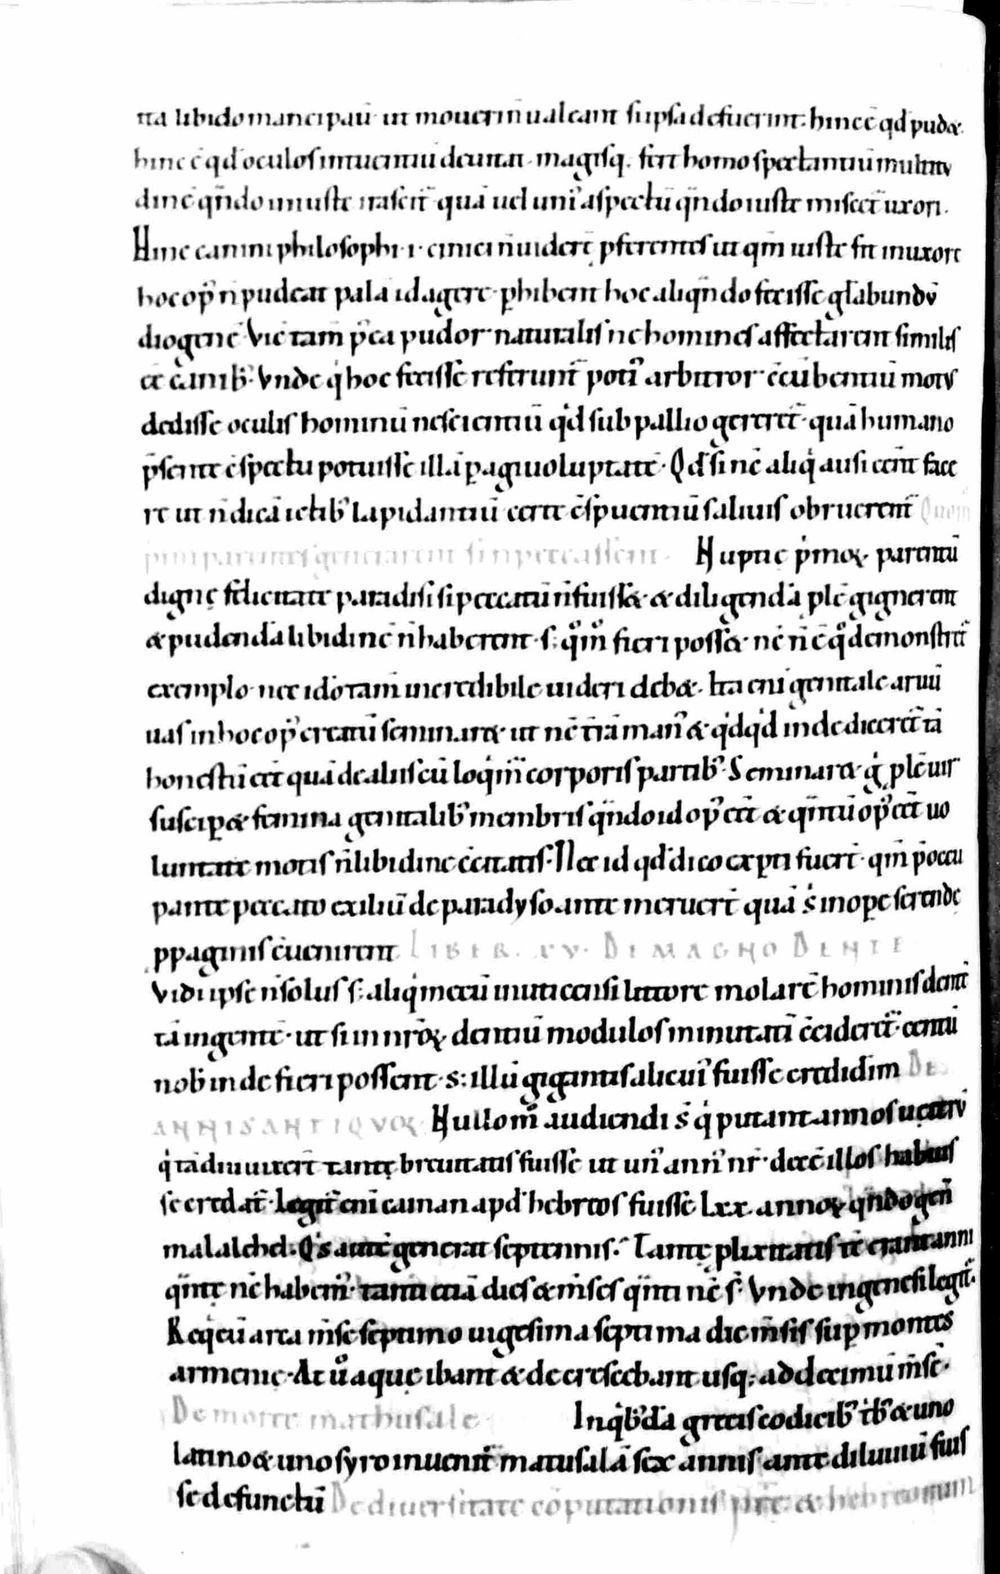 ita libido mancipauit ut moueri n̄ ualeant si ipsa defuerint. hinc ē qd̄ pudet.
hinc ē qd̄ oculos intuentiū deuitat. magisq; fert homo spectantiū multitu
dinē qn̄do iniuste irascit̄ quā uel uni᷒ aspectū qn̄do iuste miscet̄ uxori.
Hinc canini philosophi .i. cinici n̄ uider̄t pferentes ut qm̄ iuste fit in uxore
hoc op᷒ n̄ pudeat palā id agere. phibent hoc aliqn̄do fecisse glabundū
diogenē. Vic̄ tam̄ p̄ea pudor naturalis ne homines affectarent similes
ēe canib᷒. Vnde q̇ hoc fecisse referunt̄ poti᷒ arbitror c̄cūbentiū motus
dedisse oculis hominū nescientiū qd̄ sub pallio gereret̄. quā humano
p̄sente c̄spectu potuisse illā pagi uoluptatē. Qd̄ si nc̄ aliq̇ ausi eēnt face
re ut n̄ dicā ictib᷒ lapidantiū certe c̄spuentiū saliuis obruerent̄ Quom̄
primi parentes generarent si n̄ peccassent. Nuptię p̄moꝝ parentū
dignę felicitate paradisi si peccatū n̄ fuisset. & diligendā plē gignerent
& pudendā libidinē n̄ haberent. s; qͦm̊ fieri posset. nc̄ n̄ ē qͦ demonstret̄
exemplo. nec ido tam̄ incredibile uideri debet. Ita eni genitale aruū
uas in hoc op᷒ creatū seminaret. ut nc̄ t̄rā man᷒ & qd̄qd̄ inde diceret̄ tā
honestū eēt quā de aliis cū loqm̄r corporis partib᷒. Seminaret g̊ plē uir
susciꝑet femina genitalib᷒ membris qn̄do id op᷒ eēt & qn̄tū op᷒ eēt uo
luntate motis n̄ libidine c̄citatis. Nec id qd̄ dico exꝑti fuer̄t. qm̄ p̄occu
pante peccato exiliū de paradyso ante meruer̄t quā s᷒ in ope serendę
ppaginis c̄uenirent LIBER. XV. DE MAGNO DENTE
Vidi ipse n̄ solus s; aliq̇ mecū in uticensi littore molarē hominis dentē
tā ingentē. ut si in nr̄oꝝ dentiū modulos minutati c̄cideret̄ centū
nob᷒ inde fieri possent. s; illū gigantis alicui᷒ fuisse credidim̄ DE
ANNIS ANTIQVOꝝ Nullom̄ audiendi s̄ q̇ putant annos uęteru
q̇ tādiu uixer̄t tantę breuitatis fuisse ut un᷒ ann᷒ nr̄ decē illos habuis
se credat̄. Legit̄ eni cainan apd̄ hebręos fuisse lxx annoꝝ qn̄do gen̄
malalehel. Q᷒s autē generat septennis. Tantę plixitatis tc̄ erant anni
qn̄tę nc̄ habem᷒. tanti etiā dies & m̄ses qn̄ti nc̄ s̄. Vnde in genesi legit̄.
Req̇euit arca m̄se septimo uigesima septima die m̄sis sup montes
armenię. At ū̊ aquę ibant & decrescebant usq; ad decimū m̄sē.
De morte mathusale In qib᷒dā grecis codicib᷒ tb᷒ & uno
latino & uno syro inuenit̄ matusalā sex annis ante diluuiū fuis
se defunctū De diuersitate cōputationis nr̄ę & hebreorum